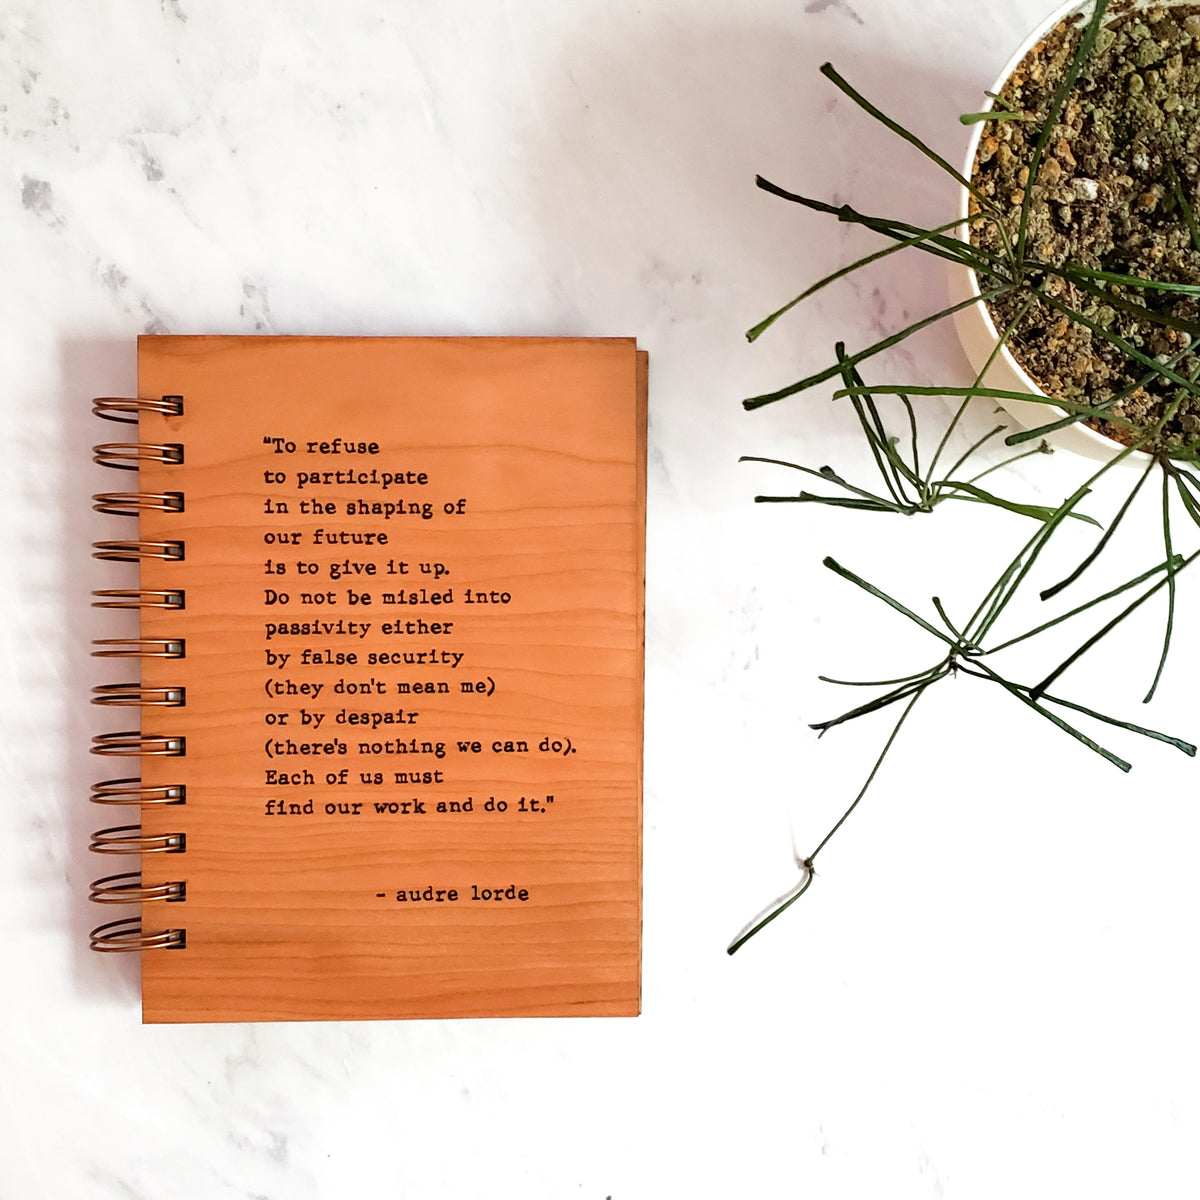 “To refuse
to participate
in the shaping of
our future
is to give it up.
Do not be misled into
passivity either
by false security
(they don't mean me)
or by despair
(there's nothing we can do).
Each of us must
find our work and do it."
- audre lorde